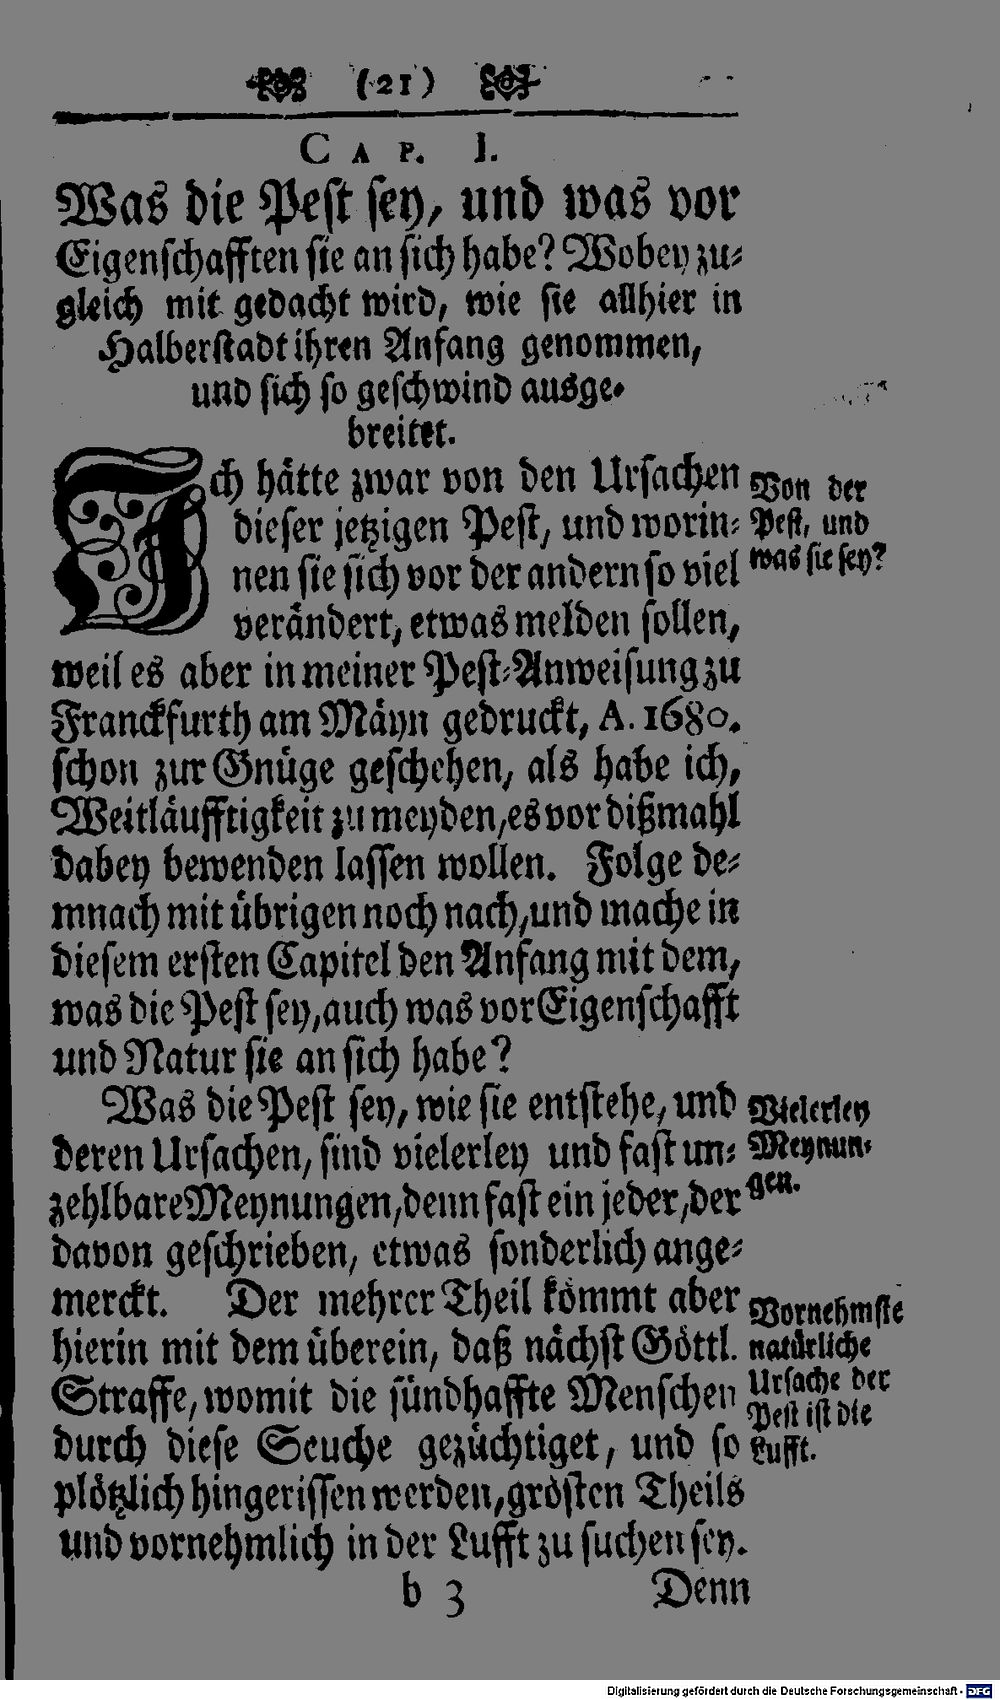 (21)
CAP. I.
Was die Pest sey, und was vor
Eigenschafften sie an sich habe? Wobey zu-
gleich mit gedacht wird, wie sie allhier in
Halberstadt ihren Anfang genommen,
und sich so geschwind ausge-
breitet.
Ich hätte zwar von den Ursachen
dieser jetzigen Pest, und worin-
nen sie sich vor der andern so viel
verändert, etwas melden sollen,
weil es aber in meiner Pest-Anweisung zu
Franckfurth am Mäyn gedruckt, A. 1680.
schon zur Gnüge geschehen, als habe ich,
Weitläufftigkeit zu meyden, es vor dißmahl
dabey bewenden lassen wollen. Folge de-
mnach mit übrigen noch nach, und mache in
diesem ersten Capitel den Anfang mit dem,
was die Pest sey, auch was vor Eigenschafft
und Natur sie an sich habe?
Von der
Pest, und
was sie sey?
Was die Pest sey, wie sie entstehe, und
deren Ursachen, sind vielerley und fast un-
zehlbare Meynungen, denn fast ein jeder, der
davon geschrieben, etwas sonderlich ange-
merckt. Der mehrer Theil kömmt aber
hierin mit dem überein, daß nächst Göttl.
Straffe, womit die sündhaffte Menschen
durch diese Seuche gezüchtiget, und so
plötzlich hingerissen werden, grösten Theils
und vornehmlich in der Lufft zu suchen sey.
Vielerley
Meynun-
gen.
Vornehmste
natürliche
Ursache der
Pest ist die
Lufft.
b 3 Denn
Digitalisierung gefördert durch die Deutsche Forschungsgemeinschaft - DFG